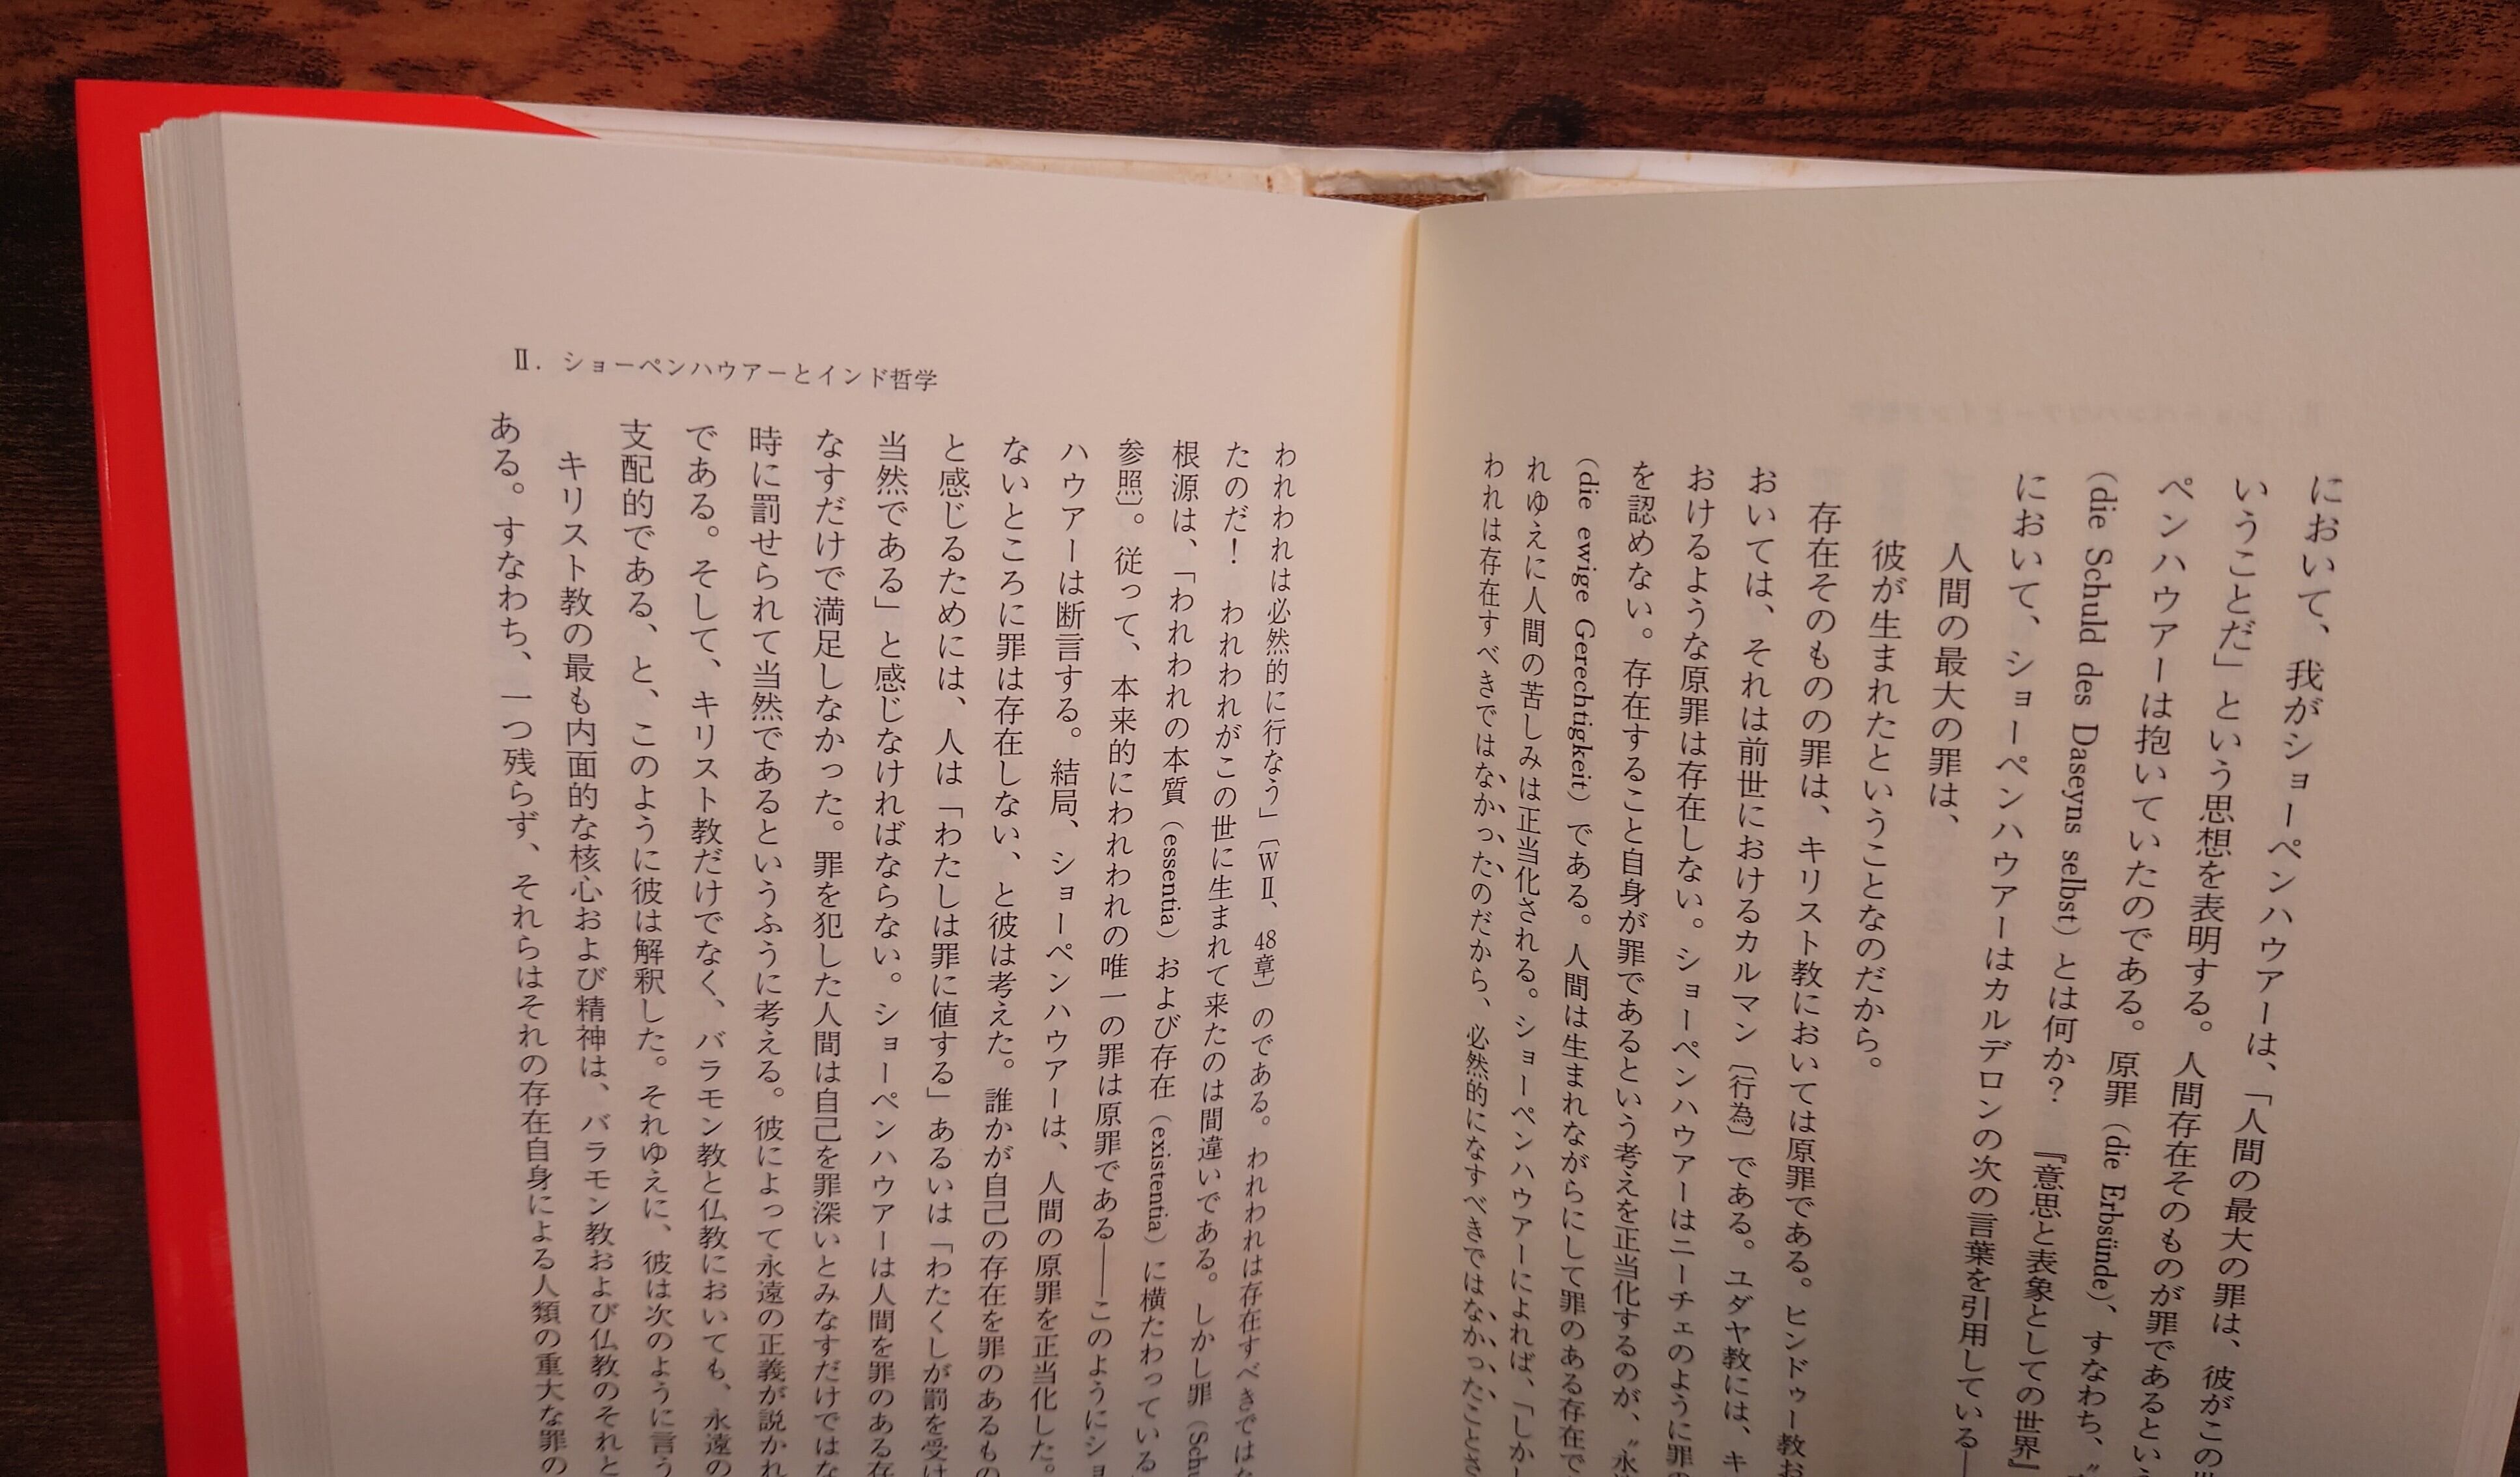 において、我がショーペンハウアーは、「人間の最大の罪は、彼がこの世
いうことだ」という思想を表明する。人間存在そのものが罪であるとい
ペンハウアーは抱いていたのである。原罪（die Erbsünde）、すなわち、〝
（die Schuld des Daseyns selbst）とは何か？ 『意思と表象としての世界』
において、ショーペンハウアーはカルデロンの次の言葉を引用している―
人間の最大の罪は、
彼が生まれたということなのだから。
存在そのものの罪は、キリスト教においては原罪である。ヒンドゥー教お
おいては、それは前世におけるカルマン〔行為〕である。ユダヤ教には、キ
おけるような原罪は存在しない。ショーペンハウアーはニーチェのように罪の
を認めない。存在すること自身が罪であるという考えを正当化するのが、〝永
（die ewige Gerechtigkeit）である。人間は生まれながらにして罪のある存在で
れゆえに人間の苦しみは正当化される。ショーペンハウアーによれば、「しか
われは存在すべきではなかったのだから、必然的になすべきではなかったことさ
II. ショーペンハウアーとインド哲学
われわれは必然的に行なう」〔WⅡ、48章〕のである。われわれは存在すべきではな
たのだ！ われわれがこの世に生まれて来たのは間違いである。しかし罪（Schu
根源は、「われわれの本質（essentia）および存在（existentia）に横たわっている
参照〕。従って、本来的にわれわれの唯一の罪は原罪である――このようにショ
ハウアーは断言する。結局、ショーペンハウアーは、人間の原罪を正当化した。
ないところに罪は存在しない、と彼は考えた。誰かが自己の存在を罪のあるもの
と感じるためには、人は「わたしは罪に値する」あるいは「わたくしが罰を受け
当然である」と感じなければならない。ショーペンハウアーは人間を罪のある存
なすだけで満足しなかった。罪を犯した人間は自己を罪深いとみなすだけではな
時に罰せられて当然であるというふうに考える。彼によって永遠の正義が説かれ
である。そして、キリスト教だけでなく、バラモン教と仏教においても、永遠の
支配的である、と、このように彼は解釈した。それゆえに、彼は次のように言う
キリスト教の最も内面的な核心および精神は、バラモン教および仏教のそれと
ある。すなわち、一つ残らず、それらはそれの存在自身による人類の重大な罪の